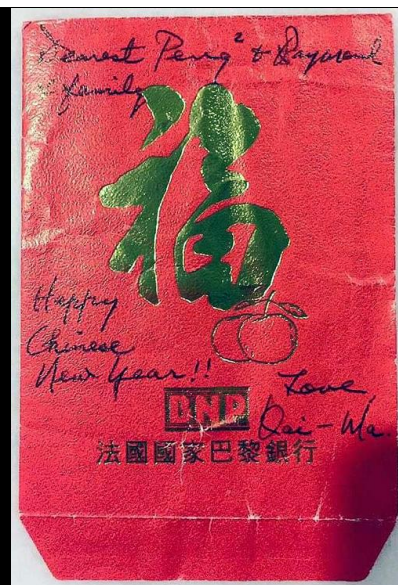 Dearest Peng² & Raymond
& family
福
Happy
Chinese
New Year!!
Love,
BNP
Dai-Ma
法國國家巴黎銀行